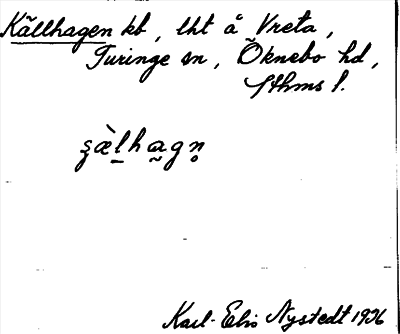 Källhagen kb, lht å Vreta,
Turinge sn, Öknebo hd,
Sthms l.
ȿæ̀l̠ha̰gn̥
Karl-EliS Nystedt 1936